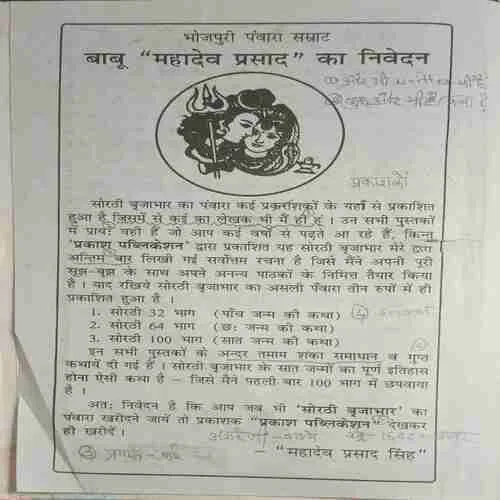 भोजपुरी पंवारा सम्राट
बाबू “महादेव प्रसाद” का निवेदन
सोरठी बृजाभार का पंवारा कई प्रकाशकों के यहाँ से प्रकाशित
हुआ है जिसमें से कुई का लेखक भी मैं ही हूं । उन सभी पुस्तकों
में प्रायः वही है जो आप कई वर्षों से पढ़ते आ रहे हैं, किन्तु
‘प्रकाश पब्लिकेशन’ द्वारा प्रकाशित यह सोरठी बृजाभार मेरे द्वारा
अन्तिम बार लिखी गई सर्वोत्तम रचना है जिसे मैंने अपनी पूरी
सूझ-बूझ के साथ अपने अनन्य पाठकों के निमित्त तैयार किया
है । याद रखिये सोरठी बृजाभार का असली पंवारा तीन रुपों में ही
प्रकाशित हुआ है ।
1. सोरठी 32 भाग (पाँच जन्म की कथा)
2. सोरठी 64 भाग (छः जन्म की कथा)
3. सोरठी 100 भाग (सात जन्म की कथा)
इन सभी पुस्तकों के अन्दर तमाम शंका समाधान व गुप्त
कथायें दी गई हैं । सोरठी बृजाभार के सात जन्मों का पूर्ण इतिहास
होना ऐसी कथा है – जिसे मैंने पहली बार 100 भाग में छपवाया
है ।
अतः निवेदन है कि आप जब भी ‘सोरठी बृजाभार’ का
पंवारा खरीदने जायें तो प्रकाशक “प्रकाश पब्लिकेशन” देखकर
ही खरीदें ।
– “महादेव प्रसाद सिंह”